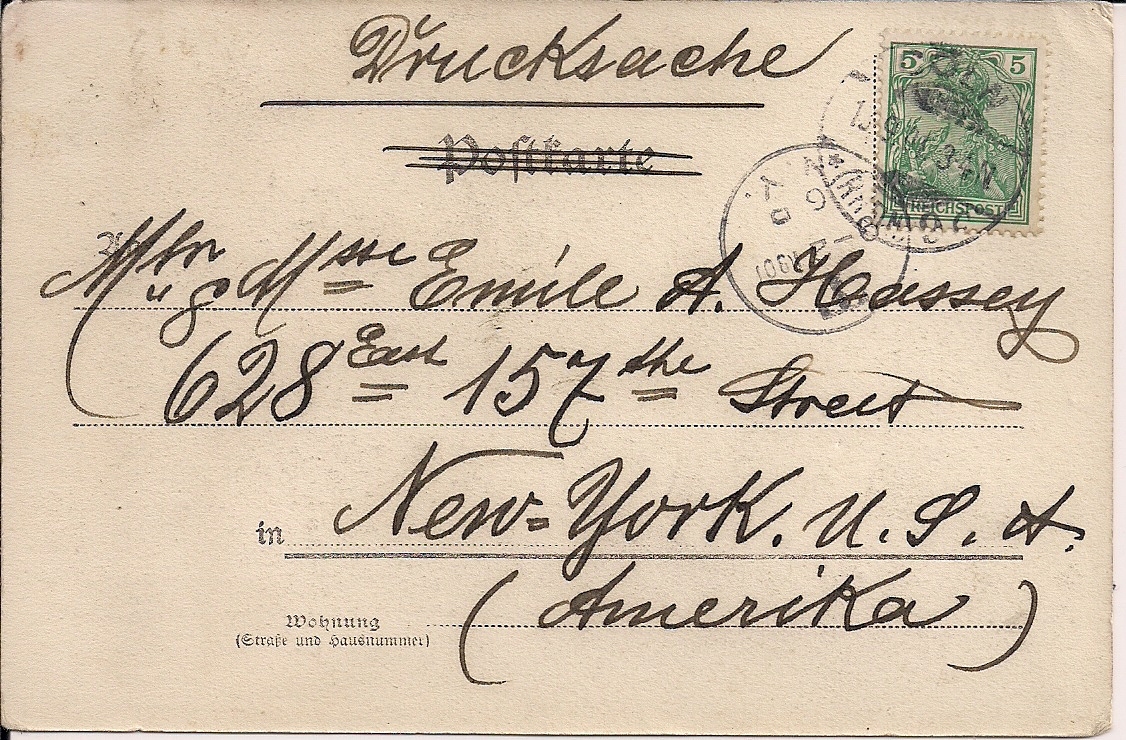 Drucksache
Postkarte
5 5
REICHSPOST
1901
Mstr u Msse Emile A. Hassey
628 East 157 the Street
in New-York. U. S. A.
(Amerika)
Wohnung
(Straße und Hausnummer)